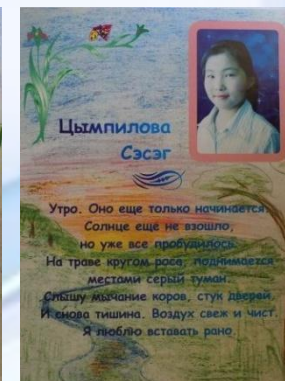 Цымпилова
Сэсэг
Утро. Оно еще только начинается.
Солнце еще не взошло,
но уже все пробудилось.
На траве кругом роса, поднимается
местами серый туман.
Слышу мычание коров, стук дверей.
И снова тишина. Воздух свеж и чист.
Я люблю вставать рано.